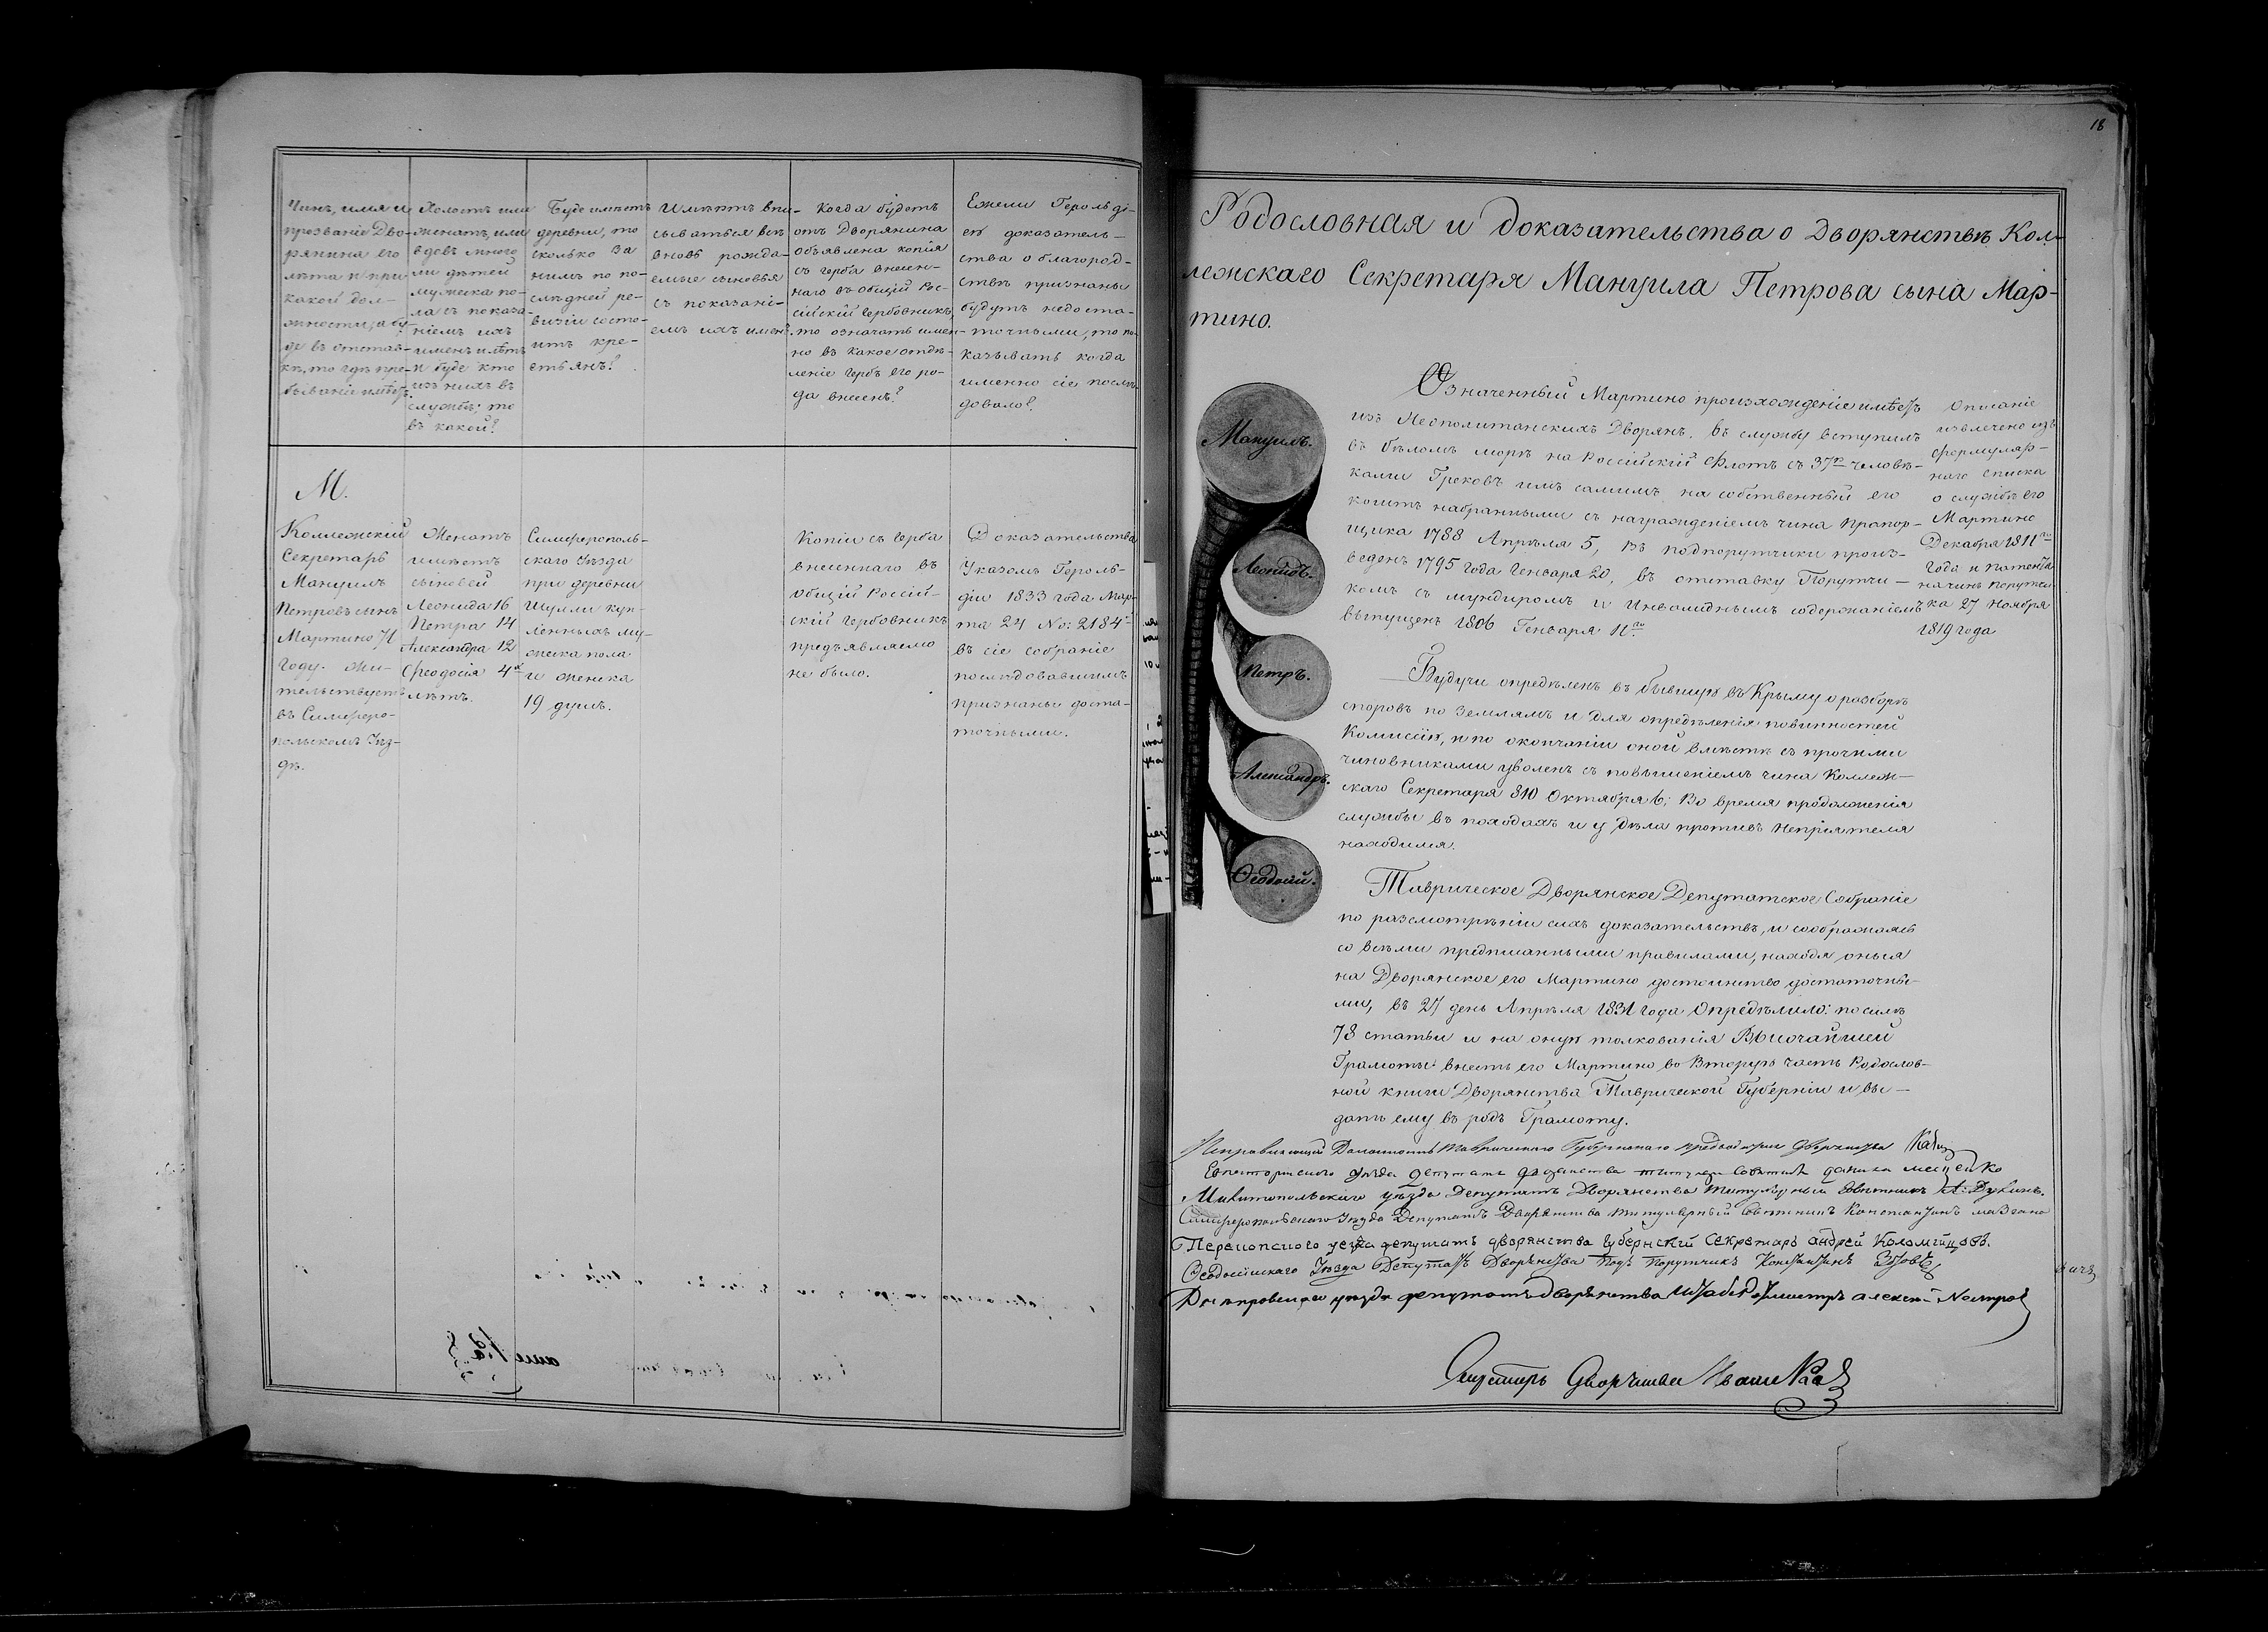 Чинъ, имя и
прозваніе Дво-
рянина его
лѣта и при
какой дол-
жности, а бу-
де въ отстав-
кѣ, то гдѣ пре-
бываніе имѣетъ.
Холостъ или
женатъ, или
вдовъ много
ли дѣтей
мужеска по-
ла съ показа-
ніемъ ихъ
именъ и лѣтъ
и буде кто
изъ нихъ въ
службѣ; то
въ какой?
Буде имѣетъ
деревни, то
сколько за
нимъ по по-
слѣдней ре-
визіи состо-
итъ кре-
стьянъ?
Имѣютъ впи-
сываться всѣ
вновь рожда-
емые сыновья
съ показані-
емъ ихъ именъ.
Когда будетъ
отъ Дворянина
объявлена копія
съ герба внесен-
наго въ общій Рос-
сійскій Гербовникъ,
то означать имен-
но въ какое отдѣ-
леніе гербъ его ро-
да внесенъ?
Ежели Герольді-
ей доказатель-
ства о благород-
ствѣ признаны
будутъ недоста-
точными, то по-
казывать когда
именно сіе послѣ-
довало?
М.
Коллежскій
Секретарь
Мануилъ
Петровъ сынъ
Мартино 71
году. жи-
тельствуетъ
въ Симферо-
польскомъ Уѣз-
дѣ.
Женатъ
имѣетъ
сыновей
Леонида 16
Петра 14
Александра 12
Феодосія 4х
лѣтъ.
Симферополь-
скаго Уѣзда
при деревни
Шумли куп-
ленныхъ му-
жеска пола
и женска
19 душъ.
Копіи съ герба
внесеннаго въ
общій Россій-
скій Гербовникъ
предъявляемо
не было.
Доказательства
Указомъ Героль-
діи 1833 года Мар-
та 24 No: 2184
въ сіе собраніе
послѣдовавшимъ
признаны доста-
точными.
18
Родословная и доказательства о Дворянствѣ Кол-
лежскаго Секретаря Мануила Петрова сына Мар-
тино.
Мануилъ.
Леонидъ.
Петръ.
Александръ.
Ѳеодосій.
Означенный Мартино произхожденіе имѣетъ
изъ Неополитанскихъ Дворянъ. въ службу вступилъ
въ бѣломъ морѣ на Россійскій Флотъ съ 37ю человѣ-
ками Грековъ имъ самимъ на собственный его
коштъ набранными съ награжденіемъ чина Прапор-
щика 1788 Апрѣля 5, въ подпорутчики произ-
веденъ 1795 года Генваря 20, въ отставку Порутчи-
комъ съ мундиромъ и Инвалиднымъ содержаніемъ
выпущенъ 1806 Генваря 11го
Описаніе
извлечено изъ
формуляр-
наго списка
о службѣ его
Мартино
Декабря 1811го
года и патента
на чинъ порутчи-
ка 27 Ноября
1819 года
Будучи опредѣленъ въ бывшую въ Крыму о разборѣ
споровъ по Землямъ и для опредѣленія повинностей
Комиссію, и по окончаніи оной вмѣстѣ съ прочими
чиновниками уволенъ съ повышеніемъ чина Коллеж-
скаго Секретаря 810 Октября 6; Во время продолженія
службы въ походахъ и у дѣла противъ непріятеля
находился.
Таврическое Дворянское Депутатское Собраніе
по разсмотрѣніи сихъ доказательствъ, и соображаясь
со всѣми предписанными правилами, находя оныя
на Дворянское его Мартино достоинство достаточны-
ми, въ 27 день Апрѣля 1831 года Опредѣлило: по силѣ
78 статьи и на оную толкованія Высочайшей
Грамоты внесть его Мартино во Вторую часть Родослов-
ной книги Дворянства Таврической Губерніи и вы-
дать ему въ родъ Грамоту.
Исправляющій Должность Таврическаго Губернскаго предводителя дворянства
Евпаторійского уѣзда депутатъ дворянства титулярн совѣтникъ
Мелитопольскаго уѣзда Депутатъ Дворянства титулярный Совѣтникъ
Симферопольскаго Уѣзда Депутатъ Дворянства титулярный Совѣтникъ Константинъ
Перекопского уезда депутатъ дворянства губернскій Секретарь андрей Коломийцовъ.
Ѳеодосійскаго Уѣзда Депутатъ Дворянства Подъ Порутчикъ Константинъ
Днѣпровскаго уѣзда депутатъ дворянства Штабсъ Ротмистръ алексей
Секретарь Дворянства